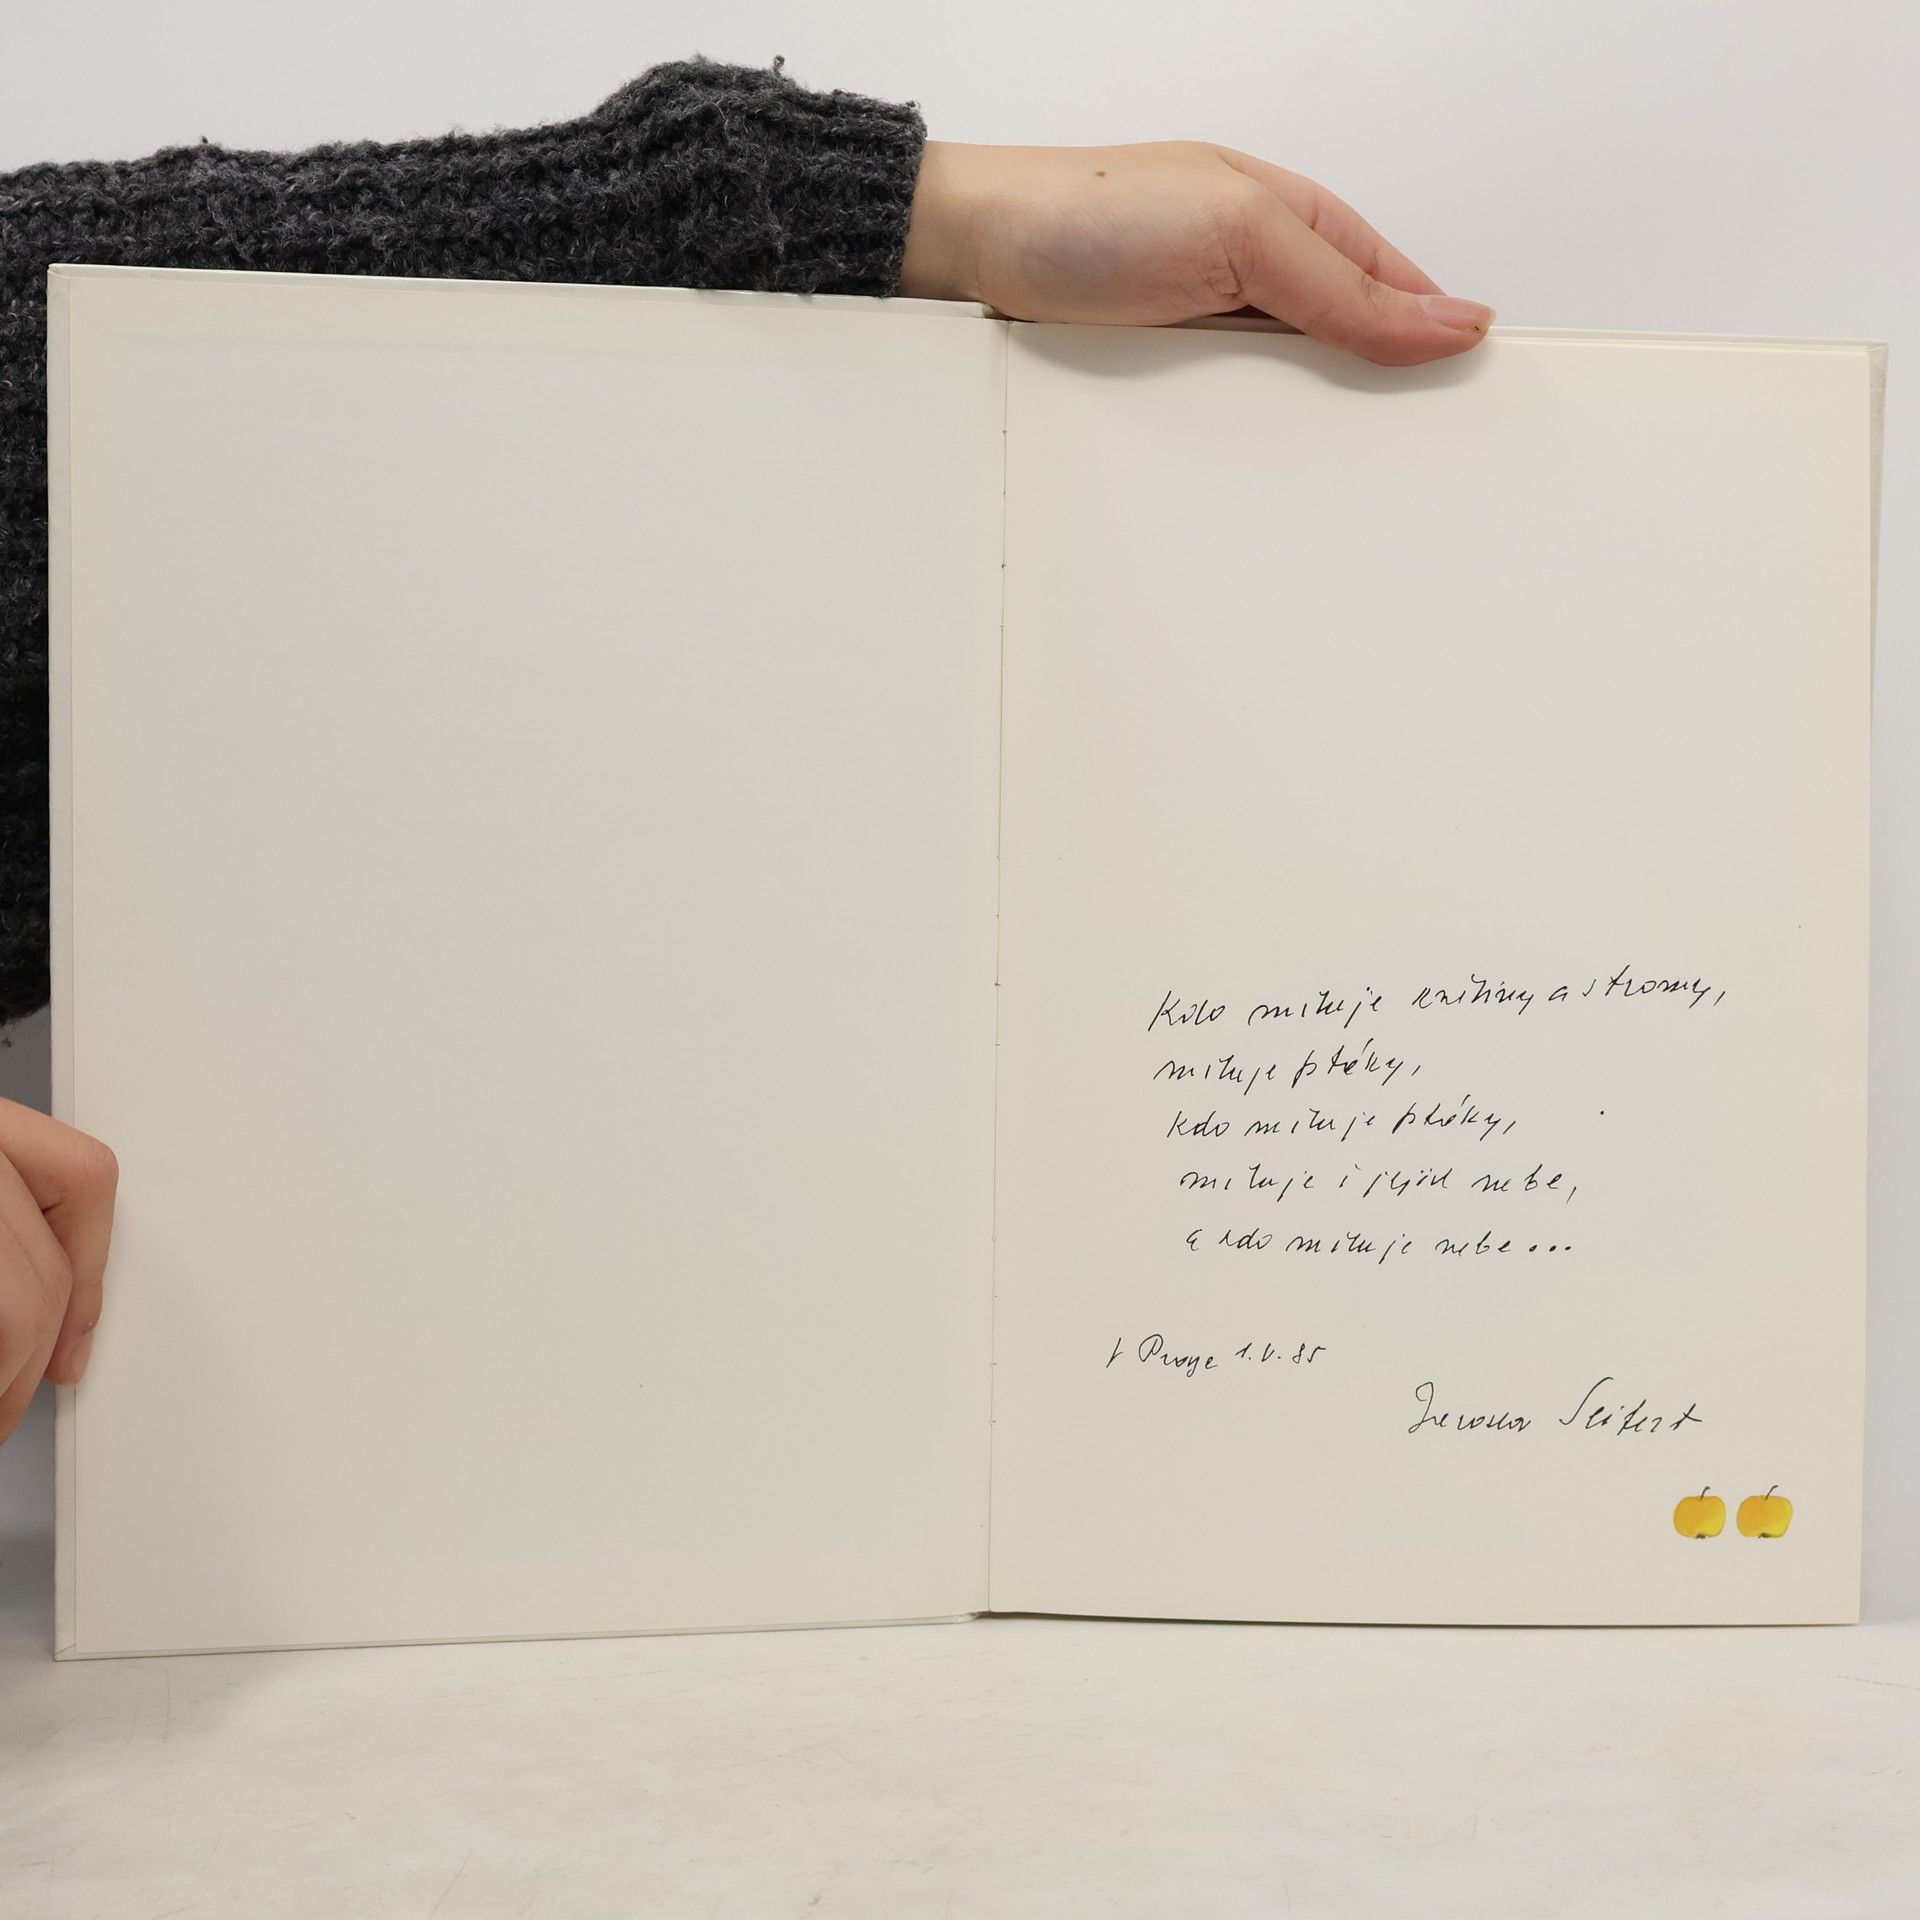 Kdo miluje květiny a stromy,
miluje ptáky,
kdo miluje ptáky,
miluje i jejich nebe,
a kdo miluje nebe...
V Praze 1.V.85
Jaroslav Seifert